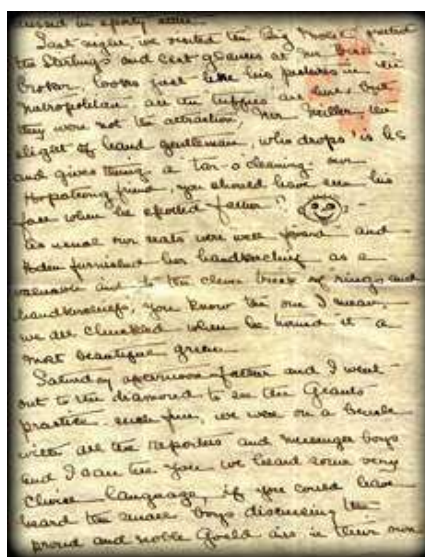 dressed in sporty attire.
Last night, we visited the Big Noise, greeted
the Sterlings and cast glances at Mr.
Broker, looks just like his pictures in the
Metropolitan. all the tuppies are here. But
they were not the attraction, Herr Miller, the
slight of hand gentleman, who drops 'is hs
and gives things a tar-o cleaning. our
Hopatcong friend, you should have seen his
face when he spotted father!!
As usual our seats were well forward and
furnished her handkerchief as a
valuable aid to the clever break of rings and
handkerchiefs, you know the one I mean,
we all chuckled when he turned it a
most beautiful green.
Saturday afternoon father and I went
out to the diamond to see the Geants
practice. such fun, we were on a bench
with all the reporters and messenger boys
and I can tell you we heard some very
choice language, if you could have
heard the small boys discussing the
proud and noble Gould as in their own